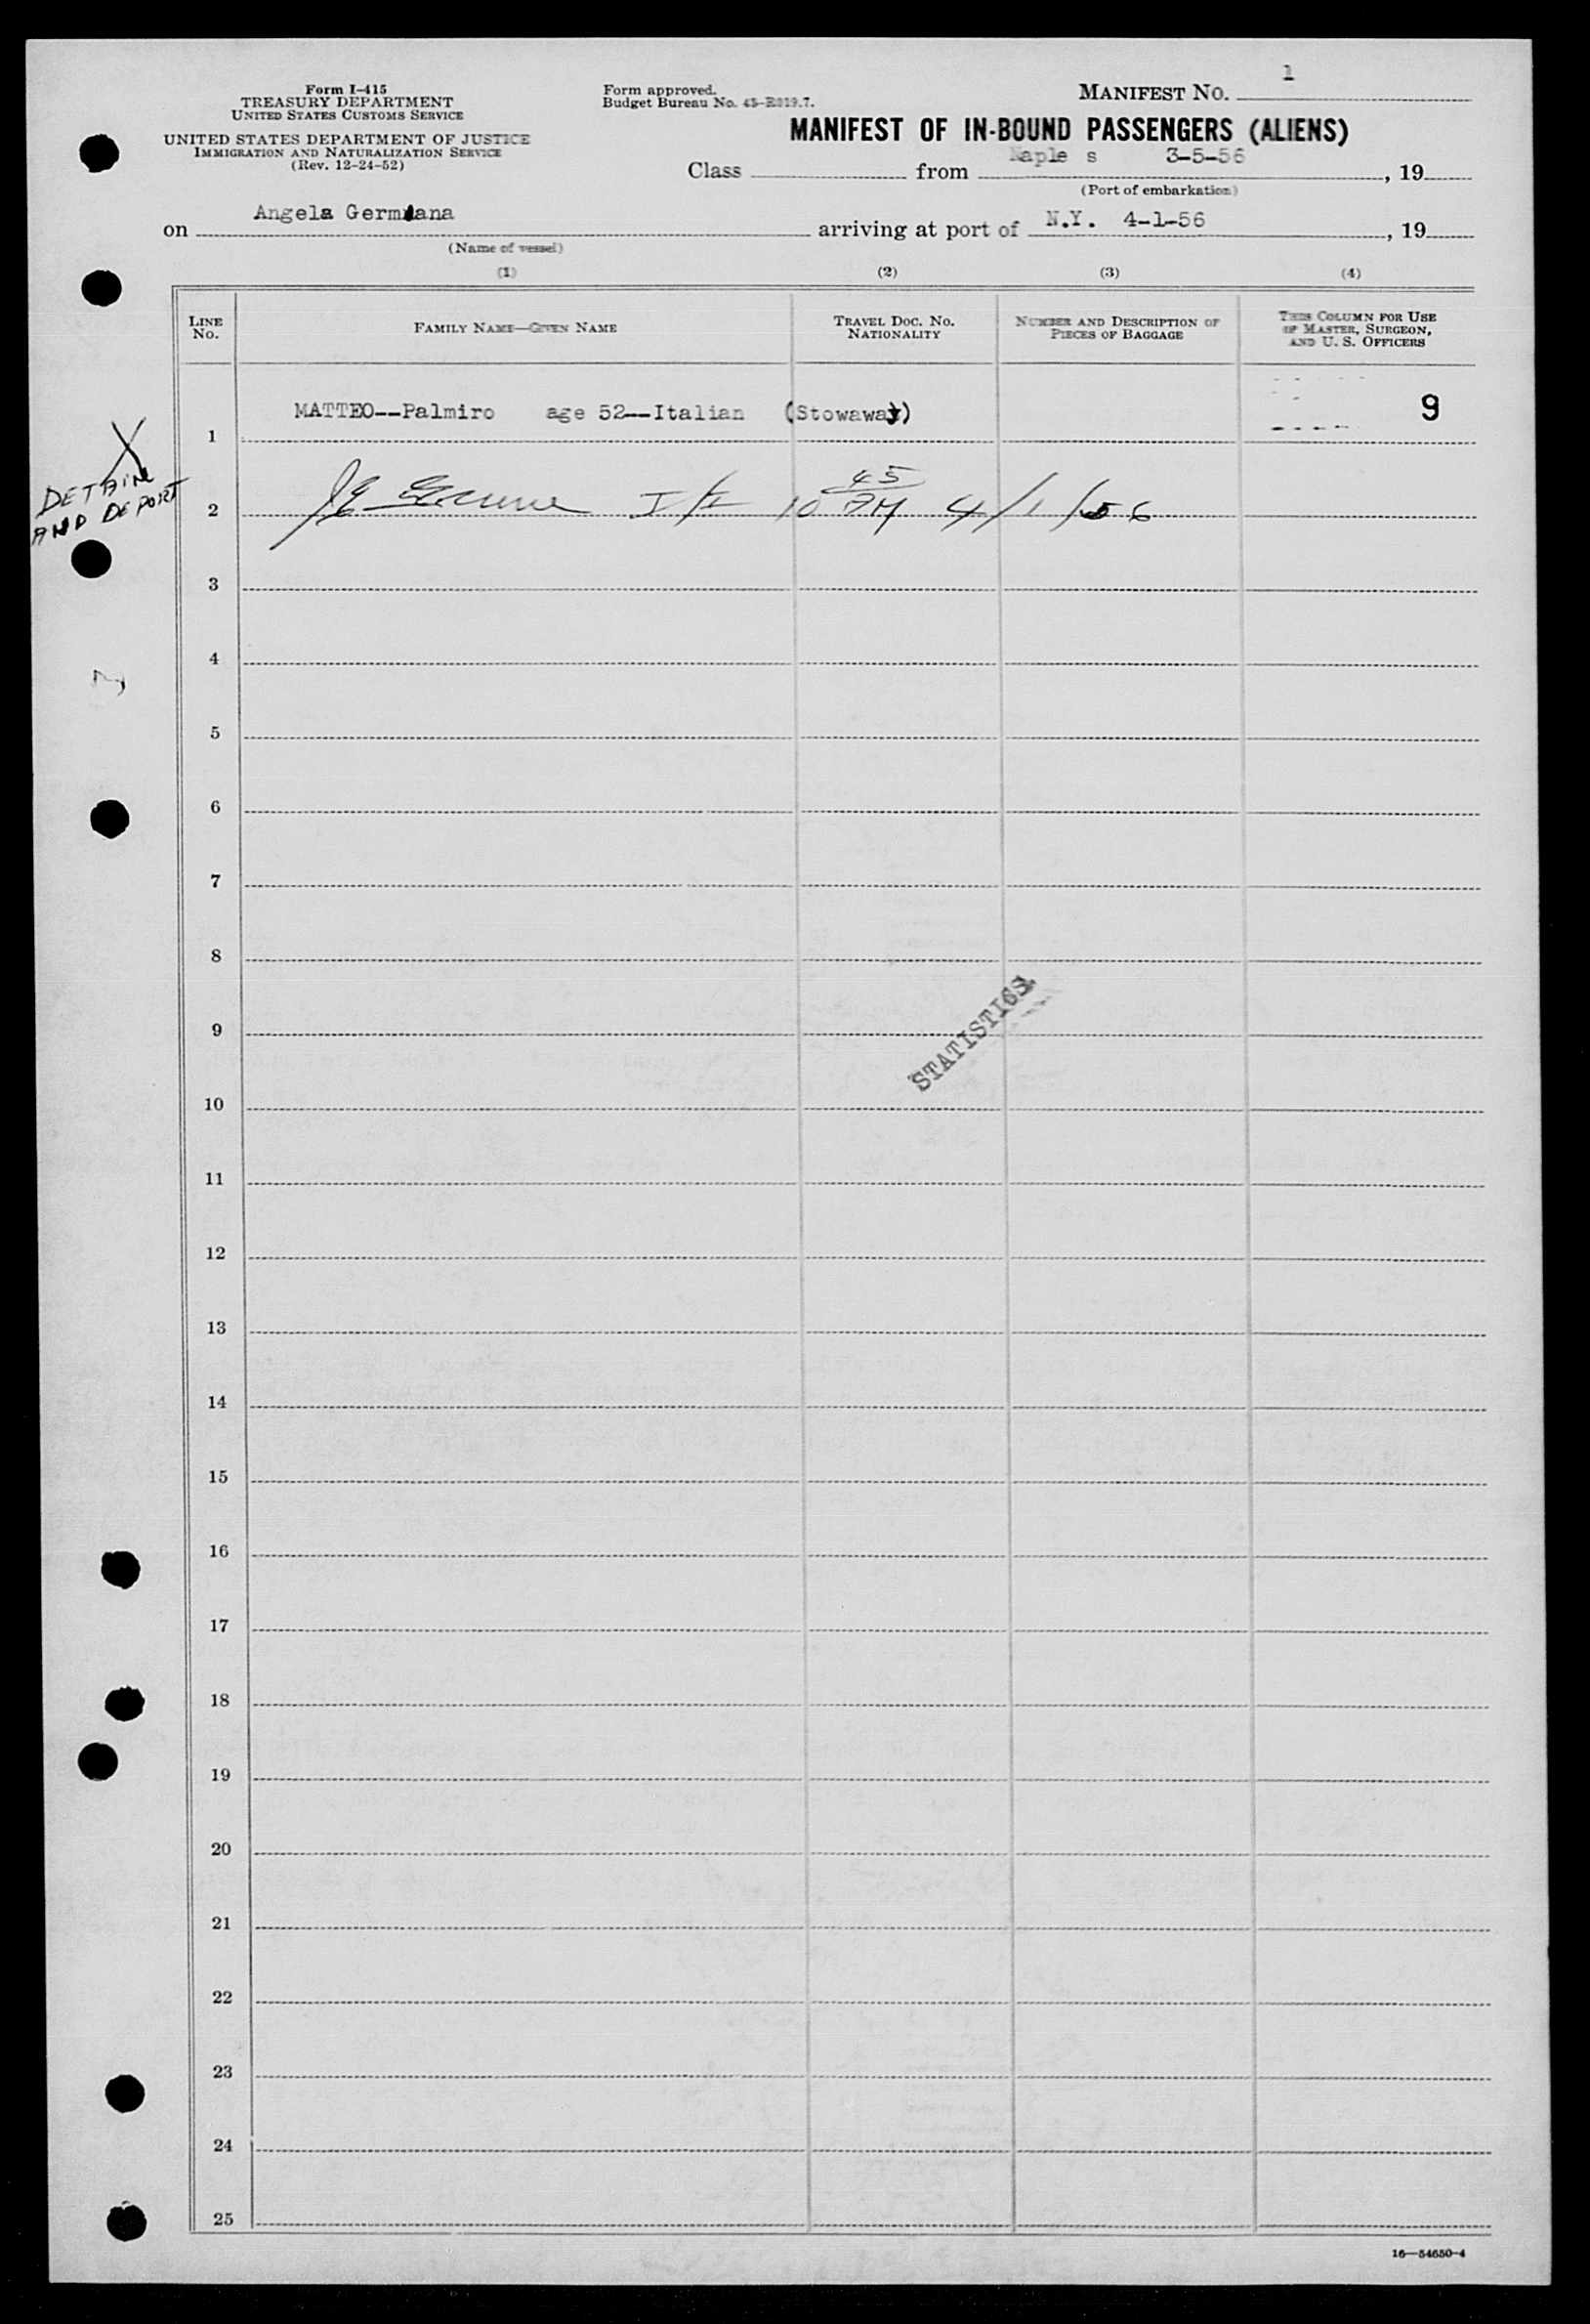 Form I-415
TREASURY DEPARTMENT
UNITED STATES CUSTOMS SERVICE
UNITED STATES DEPARTMENT OF JUSTICE
IMMIGRATION AND NATURALIZATION SERVICE
(Rev. 12-24-52)
Form approved.
Budget Bureau No. 43-R019.7.
MANIFEST NO. 1
MANIFEST OF IN-BOUND PASSENGERS (ALIENS)
Class from Naple s 3-5-56, 19
(Port of embarkation)
on Angela Germana arriving at port of N.Y. 4-1-56, 19
(Name of vessel)
(1) (2) (3) (4)
LINE NO.
FAMILY NAME—GIVEN NAME
TRAVEL DOC. NO. NATIONALITY
NUMBER AND DESCRIPTION OF PIECES OF BAGGAGE
THIS COLUMN FOR USE OF MASTER, SURGEON, AND U. S. OFFICERS
1 MATTEO--Palmiro age 52--Italian (Stowaway) 9
X
DETAIN
AND DEPORT
2 I/I 10 45 AM 4/1/56
3
4
5
6
7
8
9
STATISTICS
10
11
12
13
14
15
16
17
18
19
20
21
22
23
24
25
16—54650-4